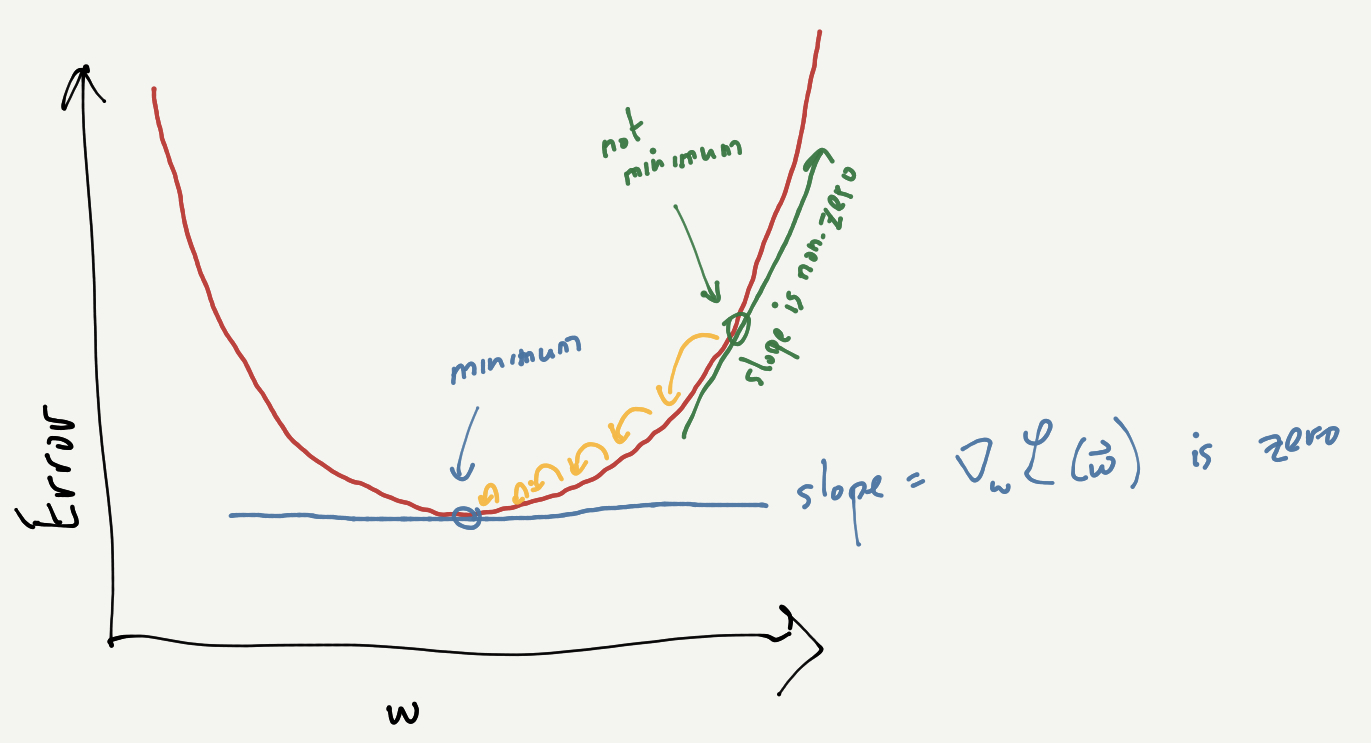 not
minimum
slope is non-zero
minimum
Error
slope = ∇w ℒ(w⃗) is zero
w